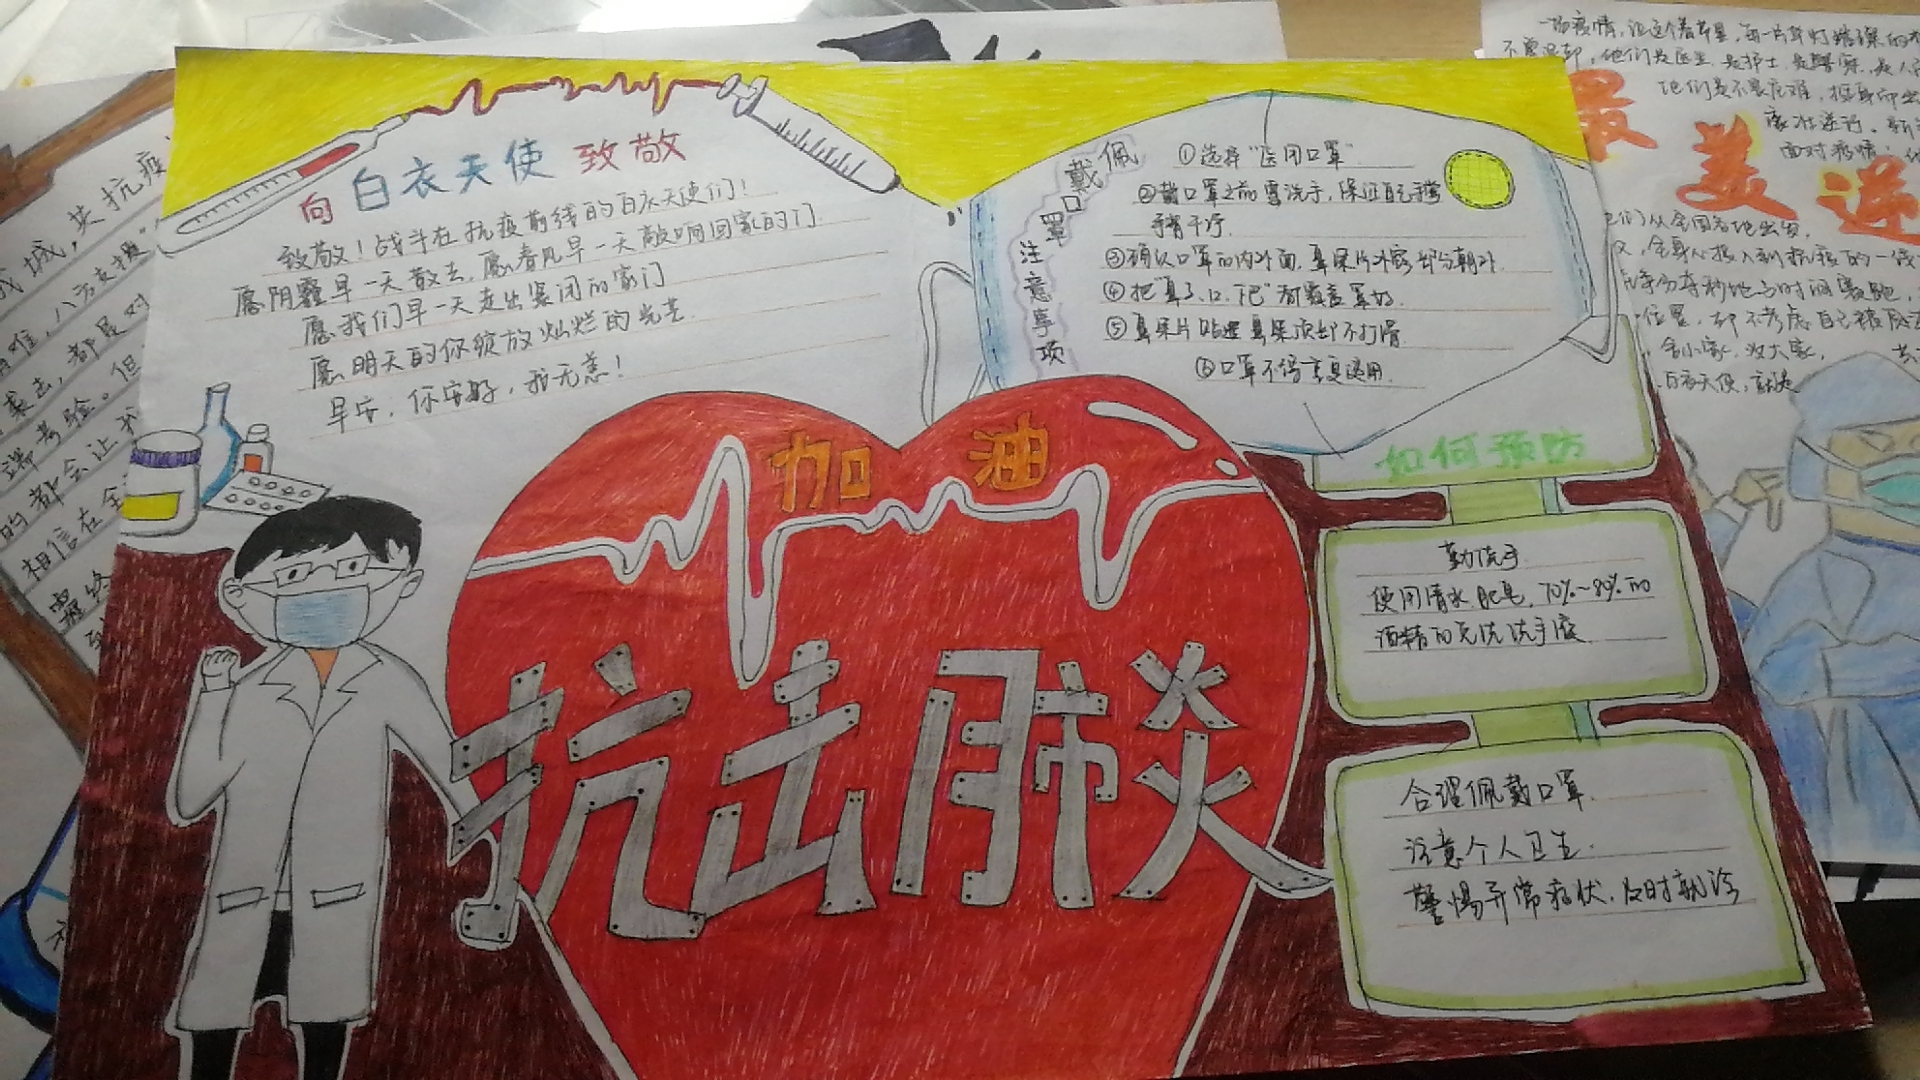 向白衣天使致敬
致敬！战斗在抗疫前线的白衣天使们！
愿阴霾早一天散去，愿春风早一天敲响回家的门
愿我们早一天走出紧闭的家门
愿明天的你绽放灿烂的光芒
早安，你安好，我无恙！
佩戴口罩
注意事项
①选择"医用口罩"
②戴口罩之前需洗手，保证自己
手
③确认口罩的内外面，鼻梁片外露部分朝外
④把"鼻子、口、下巴"都覆盖罩好
⑤鼻梁片贴 鼻梁
⑥口罩不得
加油
抗击肺炎
如何预防
勤洗手
使用清水肥皂，70%~80%的
酒精的免洗洗手液
合理佩戴口罩
注意个人卫生
警惕异常症状，及时就诊
城，共抗疫
难，八方支援
袭击，都是对
考验。但
的都会让我
相信在全
需终
一场疫情，
他们是医生，是护士，是警察，是人
他们是不畏危难，挺身而出
逆行
面对疫情
最美逆
们从全国各地出发，
全身心投入到抗疫的一线
争分夺秒地与时间赛跑，
位置，却不考虑自己
舍小家，为大家，
白衣天使，就是